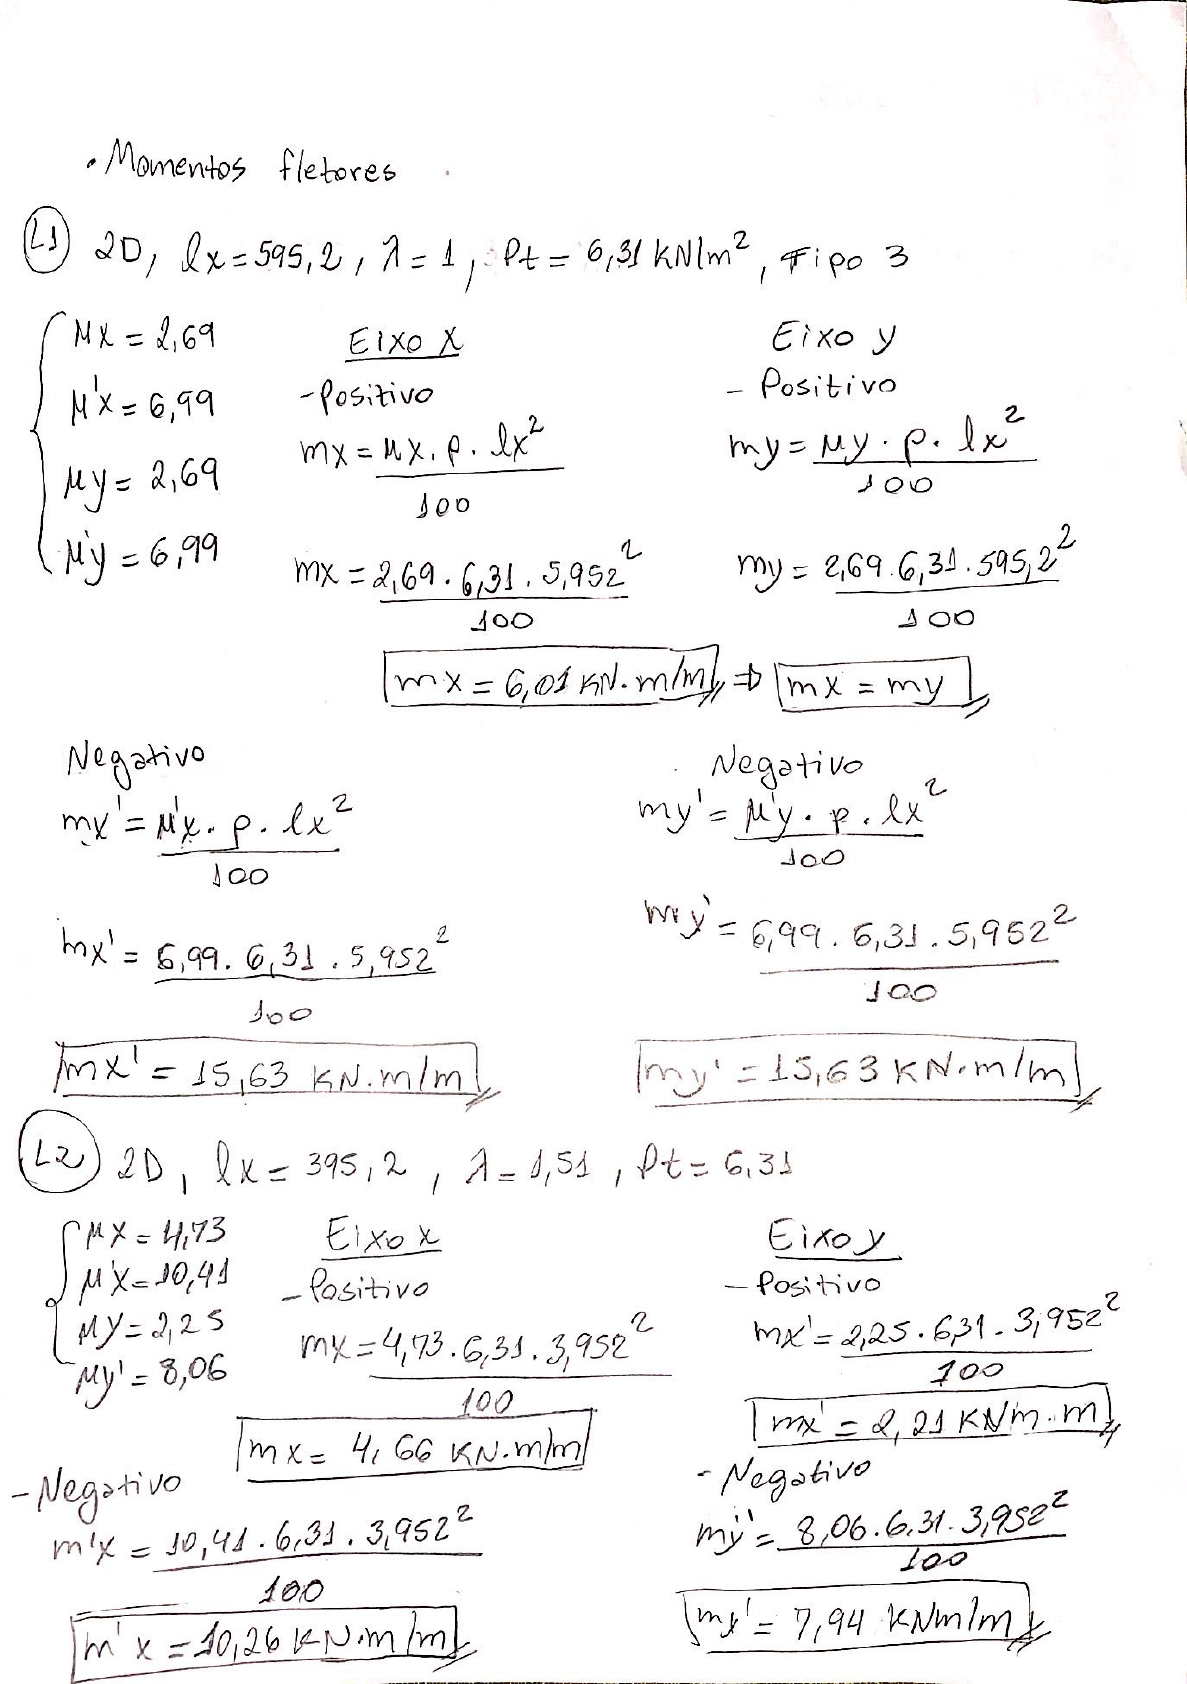 • Momentos fletores
L1 2D, lx = 595,2, λ = 1, Pt = 6,31 KN/m², Tipo 3
μx = 2,69
μ'x = 6,99
μy = 2,69
μ'y = 6,99
Eixo X
- Positivo
mx = μx . p . lx²
100
mx = 2,69 . 6,31 . 5,952²
100
mx = 6,01 KN.m/m ⇒ mx = my
Eixo y
- Positivo
my = μy . p . lx²
100
my = 2,69 . 6,31 . 595,2²
100
Negativo
mx' = μ'x . p . lx²
100
mx' = 6,99 . 6,31 . 5,952²
100
mx' = 15,63 KN.m/m
Negativo
my' = μ'y . p . lx²
100
my' = 6,99 . 6,31 . 5,952²
100
my' = 15,63 KN.m/m
L2 2D, lx = 395,2, λ = 1,51, Pt = 6,31
μx = 4,73
μ'x = 10,41
μy = 2,25
μy' = 8,06
Eixo x
- Positivo
mx = 4,73 . 6,31 . 3,952²
100
mx = 4,66 KN.m/m
Eixo y
- Positivo
mx' = 2,25 . 6,31 . 3,952²
100
mx' = 2,21 KNm.m
- Negativo
m'x = 10,41 . 6,31 . 3,952²
100
m'x = 10,26 KN.m/m
- Negativo
my' = 8,06 . 6,31 . 3,952²
100
my' = 7,94 KNm/m